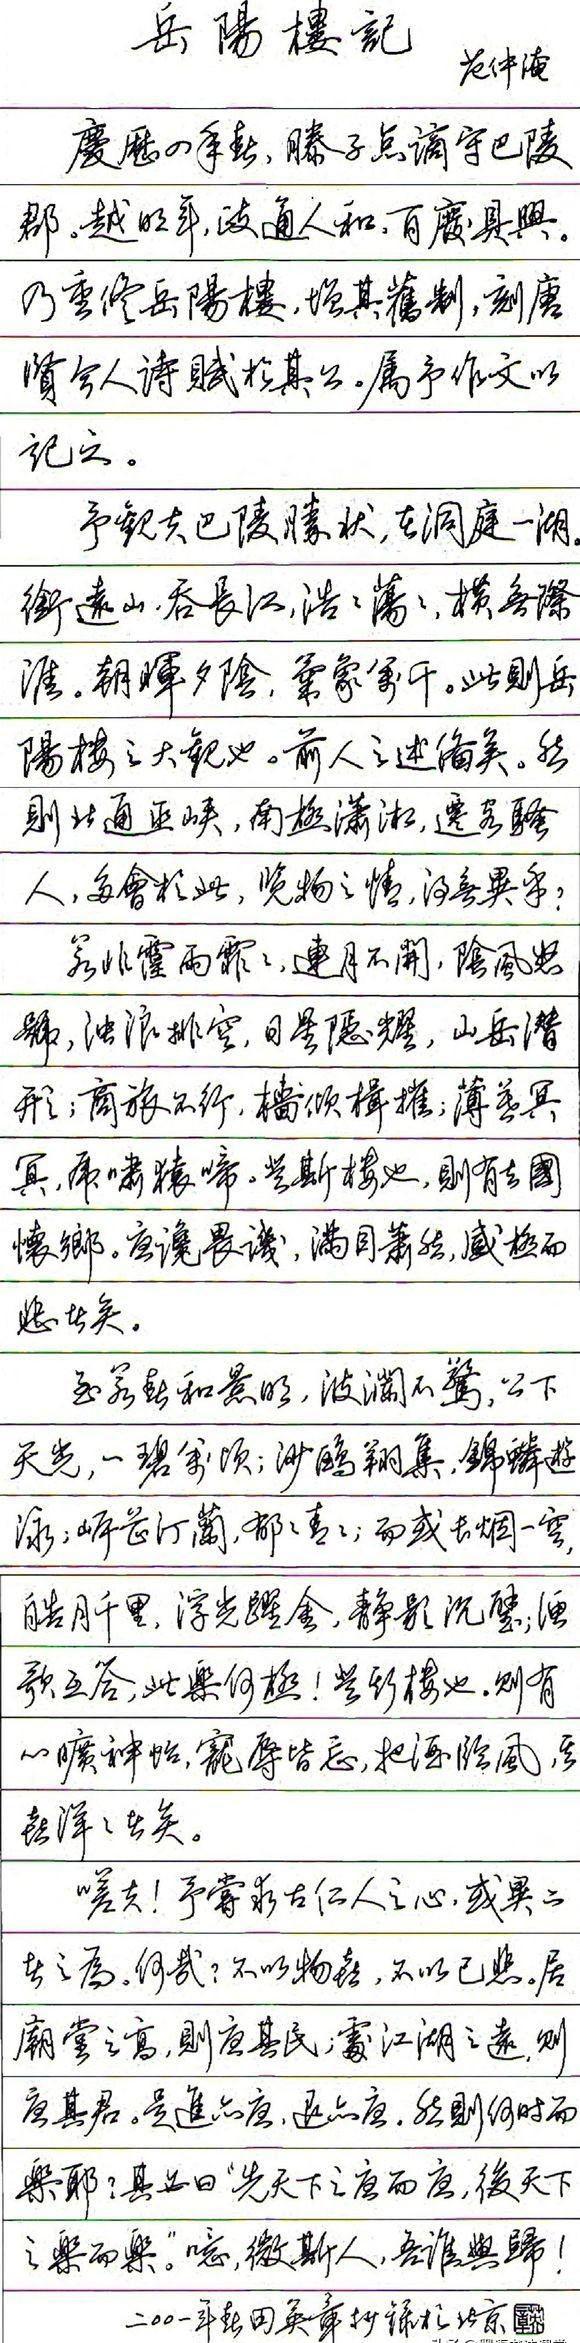 岳陽樓記
范仲淹
慶歷四年春，滕子京謫守巴陵
郡。越明年，政通人和，百廢具興。
乃重修岳陽樓，增其舊制，刻唐
賢今人詩賦於其上。屬予作文以
記之。
予觀夫巴陵勝狀，在洞庭一湖。
銜遠山，吞長江，浩〻蕩〻，橫無際
涯。朝暉夕陰，氣象萬千。此則岳
陽樓之大觀也。前人之述備矣。然
則北通巫峽，南極瀟湘，遷客騷
人，多會於此，覽物之情，得無異乎？
若非霪雨霏〻，連月不開，陰風怒
號，濁浪排空，日星隱耀，山岳潛
形；商旅不行，檣傾楫摧；薄暮冥
冥，虎嘯猿啼。登斯樓也，則有去國
懷鄉。憂讒畏譏，滿目蕭然，感極而
悲者矣。
至若春和景明，波瀾不驚，上下
天光，一碧萬頃；沙鷗翔集，錦鱗遊
泳；岸芷汀蘭，郁〻青〻；而或長煙一空，
皓月千里，浮光躍金，靜影沉璧；漁
歌互答，此樂何極！登斯樓也。則有
心曠神怡，寵辱皆忘，把酒臨風，其
喜洋〻者矣。
嗟夫！予嘗求古仁人之心，或異二
者之為。何哉？不以物喜，不以己悲。居
廟堂之高，則憂其民；處江湖之遠，則
憂其君。是進亦憂，退亦憂。然則何時而
樂耶？其必曰“先天下之憂而憂，後天下
之樂而樂”。噫，微斯人，吾誰與歸！
二〇〇一年春田英章抄錄於北京